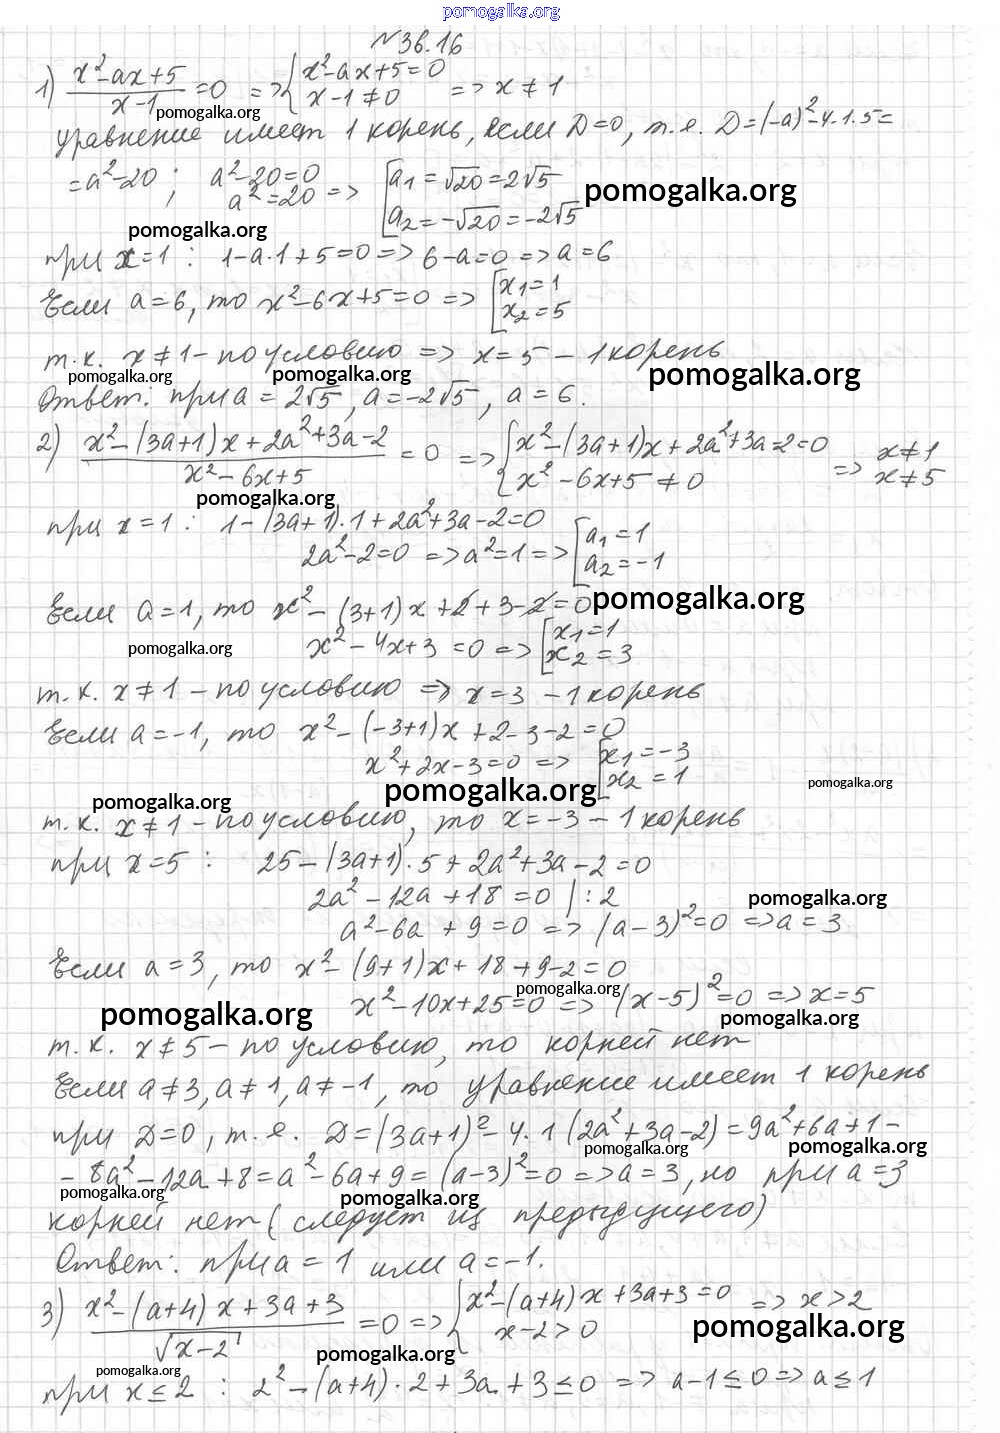 pomogalka.org
№36.16
1) (x²-ax+5)/(x-1) = 0 => { x²-ax+5=0 ; x-1≠0 => x≠1
pomogalka.org
уравнение имеет 1 корень, если D=0, т.е. D=(-a)²-4·1·5=
=a²-20 ; a²-20=0 a²=20 => [ a₁=√20=2√5 ; a₂=-√20=-2√5
pomogalka.org
pomogalka.org
при x=1 : 1-a·1+5=0=>6-a=0=>a=6
Если a=6, то x²-6x+5=0 => [ x₁=1 ; x₂=5
т.к. x≠1 - по условию => x=5 - 1 корень
pomogalka.org pomogalka.org pomogalka.org
Ответ: при a=2√5, a=-2√5, a=6.
2) (x²-(3a+1)x+2a²+3a-2)/(x²-6x+5) = 0 => { x²-(3a+1)x+2a²+3a-2=0 ; x²-6x+5≠0 => x≠1 x≠5
pomogalka.org
при x=1 : 1-(3a+1)·1+2a²+3a-2=0
2a²-2=0 => a²=1=> [ a₁=1 ; a₂=-1
Если a=1, то x²-(3+1)x+2+3-2=0
pomogalka.org
pomogalka.org
x²-4x+3=0 => [ x₁=1 ; x₂=3
т.к. x≠1 - по условию => x=3 - 1 корень
Если a=-1, то x²-(-3+1)x+2-3-2=0
x²+2x-3=0 => [ x₁=-3 ; x₂=1
pomogalka.org pomogalka.org pomogalka.org
т.к. x≠1 - по условию, то x=-3 - 1 корень
при x=5 : 25-(3a+1)·5+2a²+3a-2=0
2a²-12a+18=0 |:2
pomogalka.org
a²-6a+9=0 => (a-3)²=0 =>a=3
Если a=3, то x²-(9+1)x+18+9-2=0
pomogalka.org
x²-10x+25=0 => (x-5)²=0 =>x=5
pomogalka.org pomogalka.org
т.к. x≠5 - по условию, то корней нет
Если a≠3, a≠1, a≠-1, то уравнение имеет 1 корень
при D=0, т.е. D=(3a+1)²-4·1(2a²+3a-2)=9a²+6a+1-
pomogalka.org pomogalka.org
-8a²-12a+8=a²-6a+9=(a-3)²=0=>a=3, но при a=3
pomogalka.org pomogalka.org
корней нет (следует из предыдущего)
Ответ: при a=1 или a=-1.
3) (x²-(a+4)x+3a+3)/√(x-2) = 0 => { x²-(a+4)x+3a+3=0 ; x-2>0 => x>2
pomogalka.org pomogalka.org
pomogalka.org
при x≤2 : 2²-(a+4)·2+3a+3≤0 => a-1≤0=>a≤1
pomogalka.org